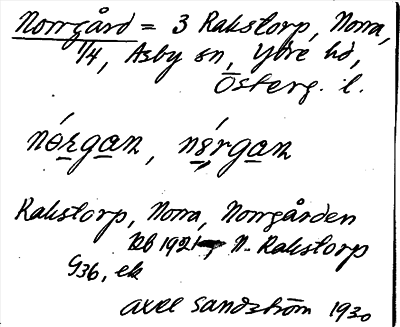 Norrgård = 3 Rakstorp, Norra,
1/4, Asby sn, Ydre hd,
Österg. l.
nǿrgan, nǿrgan
Rakstorp, Norra, Norrgården
Jeb 1921 N. Rakstorp
G36, ek
Axel Sandström 1930